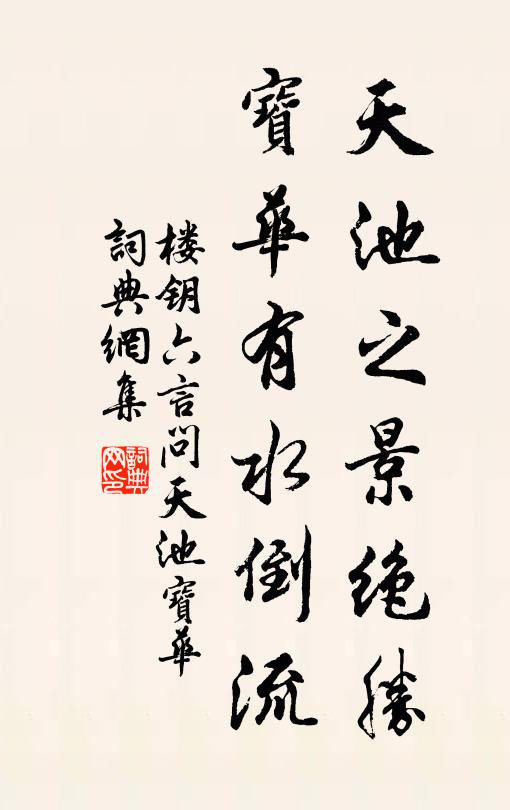 天池之景绝勝
寶華有水倒流
楼钥六言问天池寶華
詞典網集
詞典网印